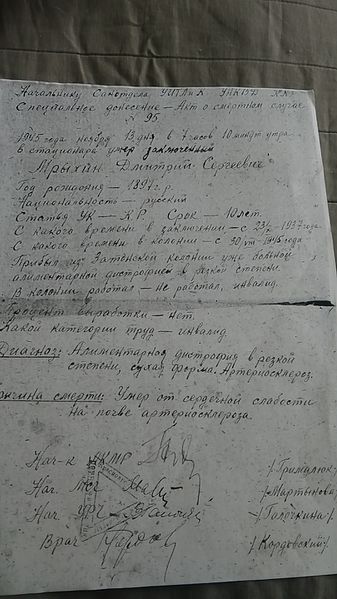 Начальнику Санотдела УИТЛиК УНКВД
Специальное донесение – Акт о смертном случае
№ 95
1945 года ноября 13 дня в 7 часов 10 минут утра
в стационаре умер заключенный
Дмитрий Сергеевич
Год рождения – 1897 г р.
Национальность – русский
Статья УК – К.Р. Срок – 10 лет.
С какого времени в заключении – с 1937 года
С какого времени в колонии – с 30/VIII 1945 года
Прибыл из колонии уже больной
алиментарной дистрофией в резкой степени.
В колонии работал – не работал, инвалид.
Процент выработки – нет.
Какой категории труд – инвалид.
Диагноз: Алиментарная дистрофия в резкой
степени, сухая форма. Артериосклероз.
Причина смерти: Умер от сердечной слабости
на почве артериосклероза.
Нач-к /Грималюк/
Нач. /Мартынова/
Нач. /Галочкина/
Врач /Кордовский/